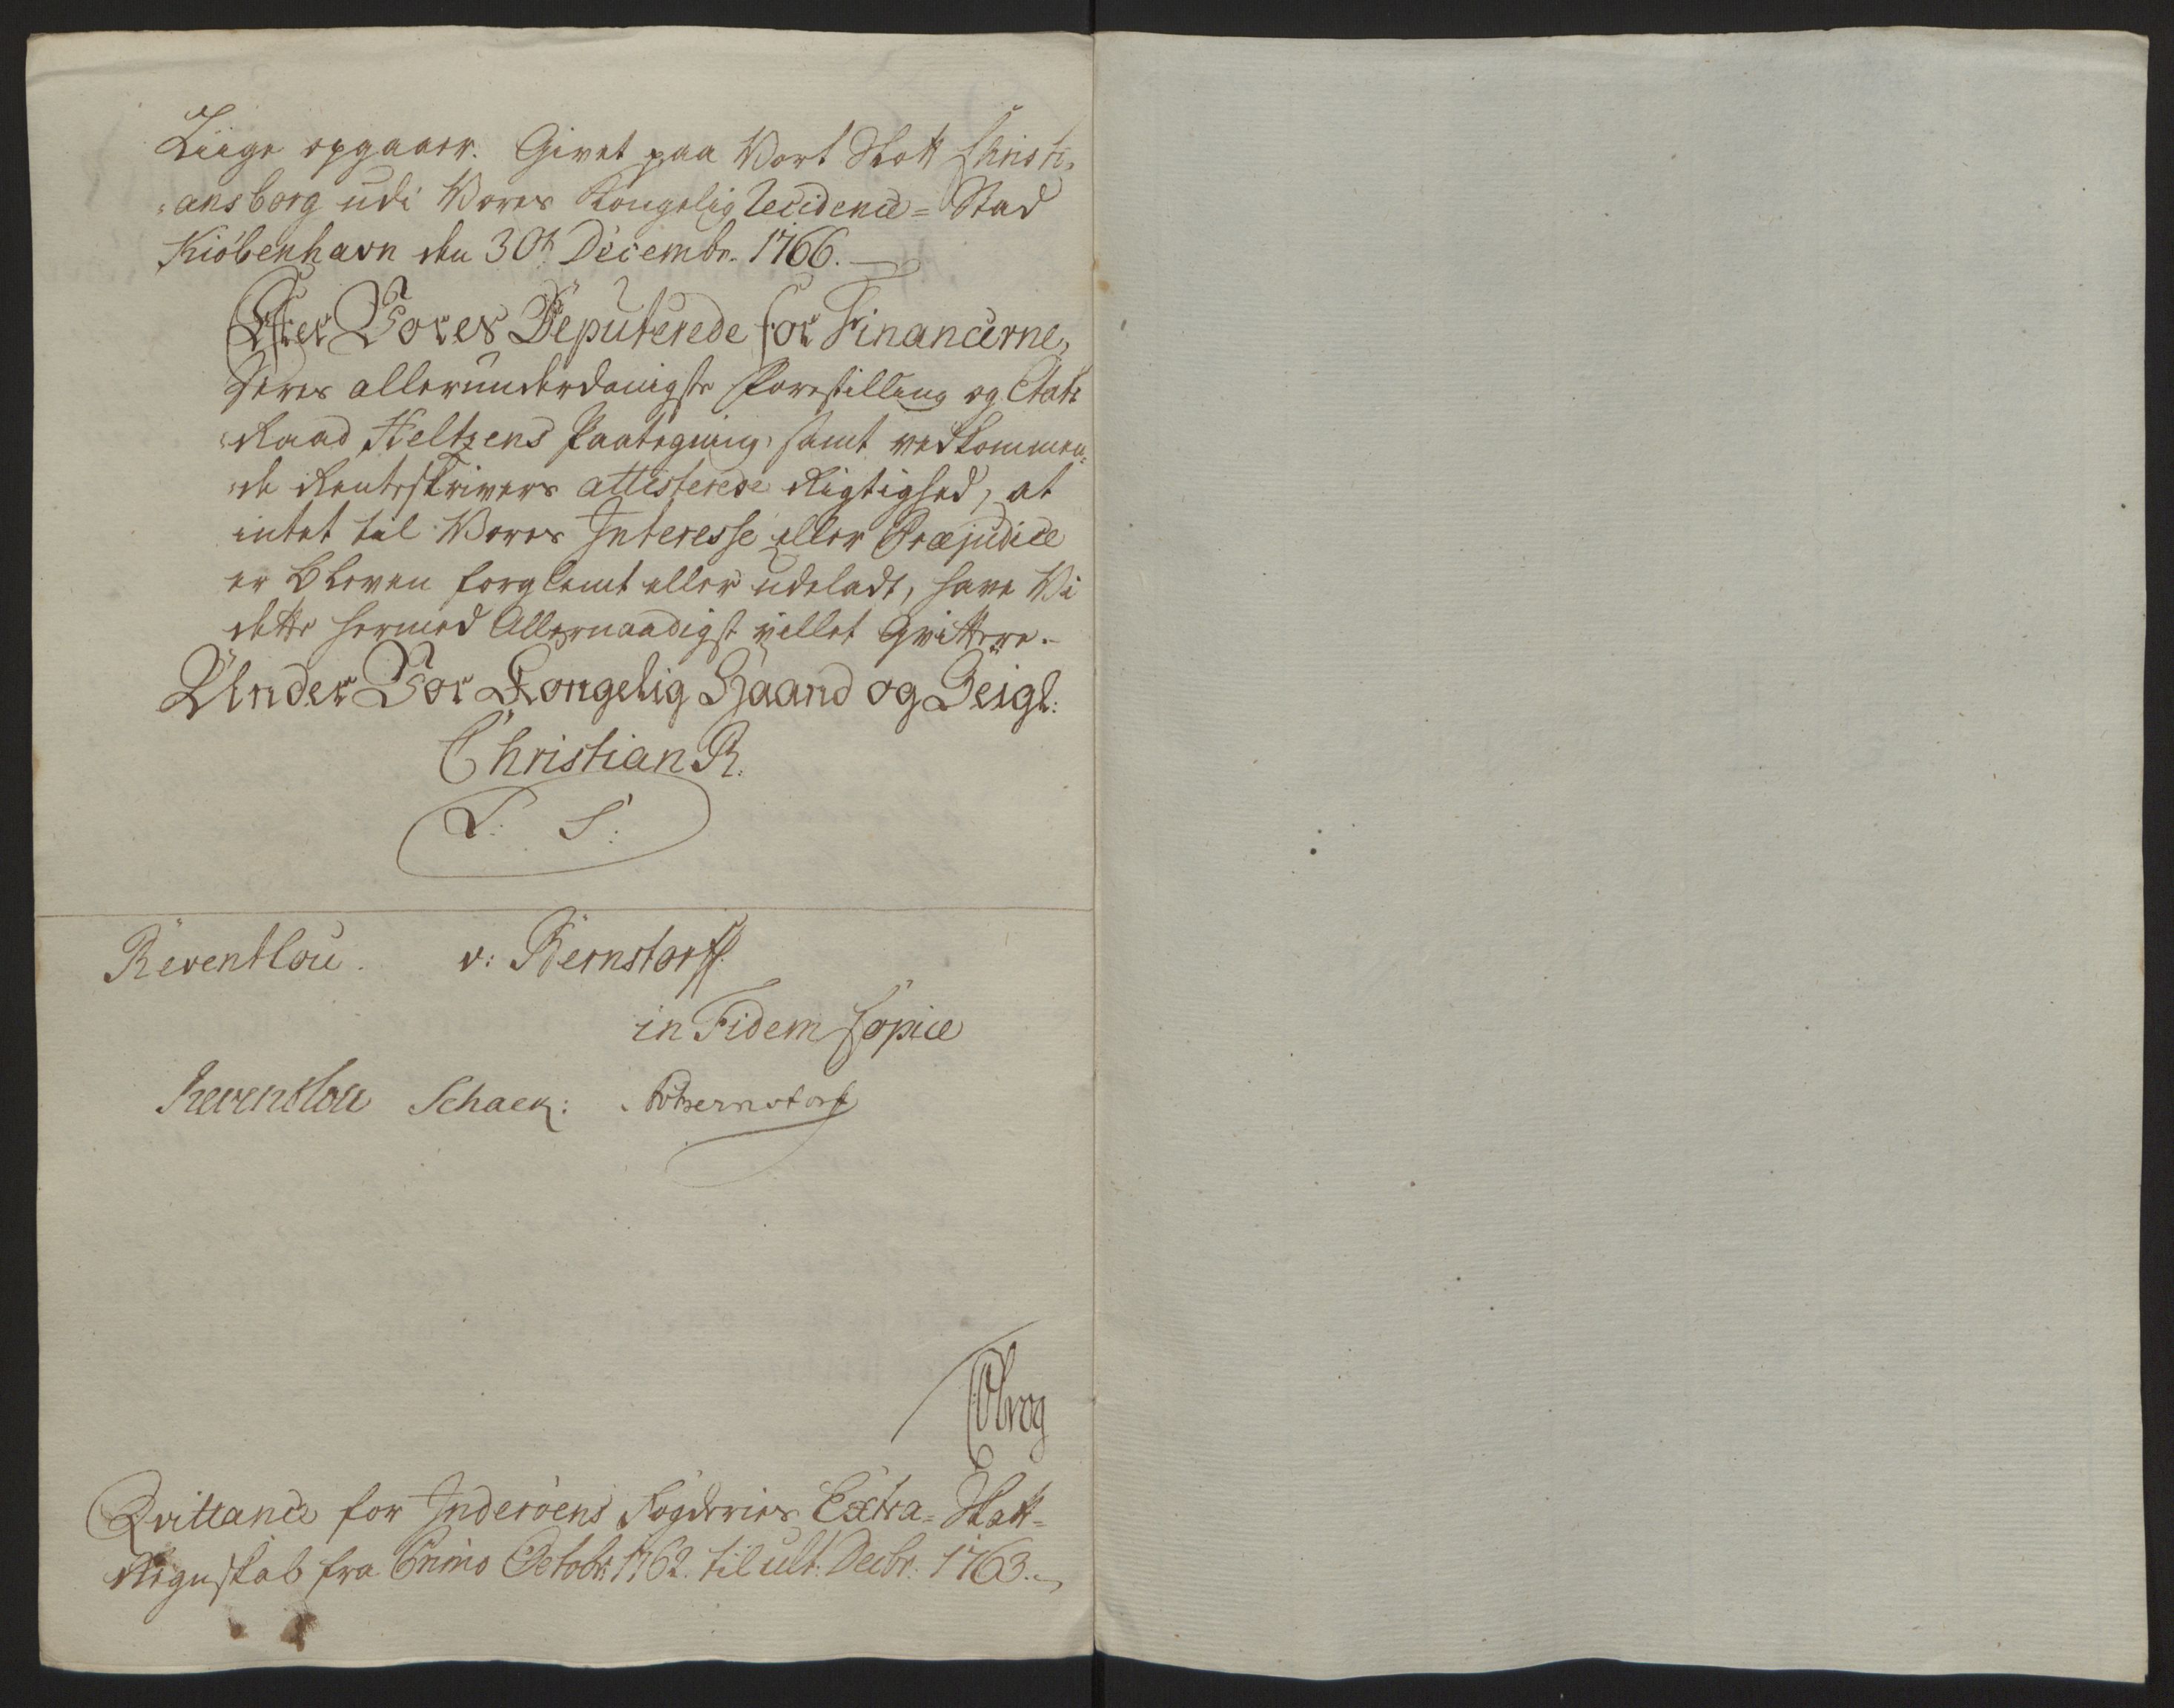 Liige opgaaer. Givet paa Vort Slott Christi,
,ansborg udi Vores Kongelig Recidence=Stad
Kiöbenhavn den 30t Decembr. 1766.
Efter Vores Deputerede for Financerne,
Deres allerunderdanigste Forestilling og Etats
Raad Heltzens Paategning, samt vedkommen,
,de Rentskrivers attisterede Rigtighed, at
intet til Vores Interesse eller Præjudice
er bleven forglemt eller udeladt, have Vi
dette hermed Allernaadigst villet Qvittere.
Under Vor Kongelig Haand og Zeigl:
Christian R.
L. S.
Reventlou. v: Bernstorff.
in Fidem Copiæ
Reventlou Schack: Bernstorff
Qvittance for Inderöens Fogderies Extra=Skatt=
Regnskab fra Primo Octobr: 1762. til ult: Decbr: 1763.